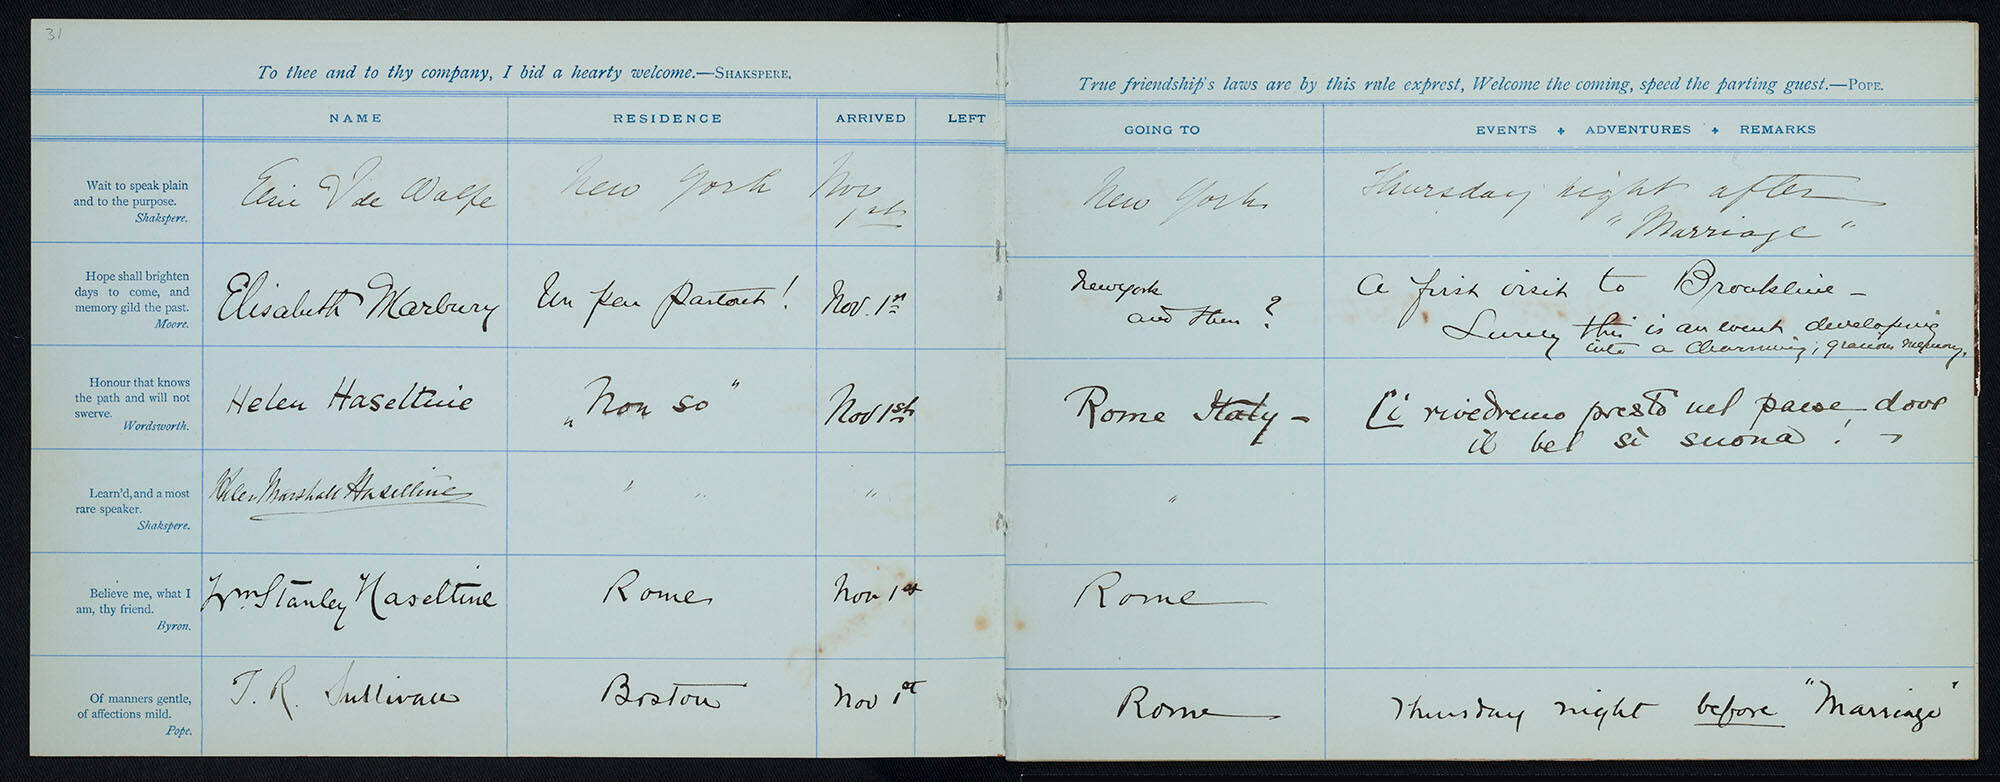 31
To thee and to thy company, I bid a hearty welcome.—SHAKSPERE.
True friendship's laws are by this rule exprest, Welcome the coming, speed the parting guest.—POPE.
NAME RESIDENCE ARRIVED LEFT GOING TO EVENTS + ADVENTURES + REMARKS
Wait to speak plain
and to the purpose.
Shakspere.
Elsie de Wolfe New York Nov
1st
New York Thursday night after
"Marriage"
Hope shall brighten
days to come, and
memory gild the past.
Moore.
Elisabeth Marbury Un peu partout! Nov. 1st
New York
and then?
A first visit to Brookline—
Surely this is an event developing
into a charming, gracious memory.
Honour that knows
the path and will not
swerve.
Wordsworth.
Helen Haseltine "Non so" Nov 1st Rome Italy—
Ci rivedremo presto nel paese dove
il bel sì suona!
Learn'd, and a most
rare speaker.
Shakspere.
Helen Marshall Haseltine " " " "
Believe me, what I
am, thy friend.
Byron.
Wm. Stanley Haseltine Rome Nov 1st Rome
Of manners gentle,
of affections mild.
Pope.
T. R. Sullivan Boston Nov 1st Rome Thursday night before "Marriage"